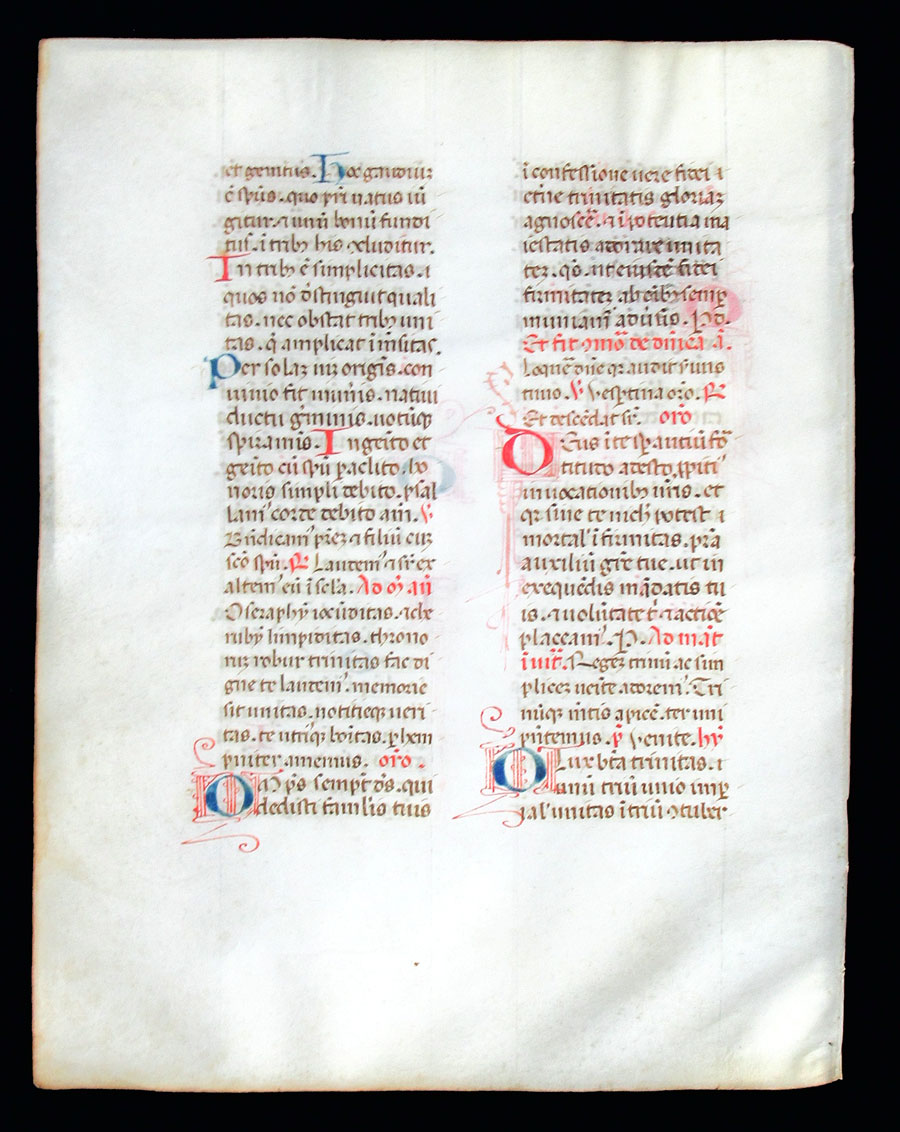 et genitus. Hoc gaudiũ
ẽ spũs. quo pr̃i natus iũ
gitur. ⁊ unũ bonũ fundi
tus. ĩ trib; his ꝯluditur.
In trib; ẽ simplicitas. ⁊
quos nõ distinguit quali
tas. nec obstat trib; uni
tas. q̃ amplicat ĩmẽsitas.
Per solaꝫ uiz originis. con
uinio fit numinis. natiui
ductu gr̃minis. uotũq̃
spiraminis. Ingeito et
geito cũ spũ paclito. ho
noris simpli debito. psal
lam' corde debito am̃. ꝟ
Bñdicam' prẽꝫ ⁊ filiũ cuꝫ
sc̃o spũ. ℟ Laudem' ⁊ sr̃ ex
altem' eũ ĩ sc̃la. Ad m̃ añ
O seraphyꝫ iocũditas. ⁊ che
ruby limpiditas. throno
ruꝫ robur trinitas fac di
gne te laudem'. memorie
sit unitas. notitieq̃ ueri
tas. te utriq̃ bõitas. p̱hem
pniter amemus. oro̅.
Om̃ps sempt̃ ds̃. qui
dedisti famulis tuis
ĩ confessione uere fidei ⁊
etr̃ne trinitatis gloriaꝫ
agnosc̃e. ⁊ ĩ potentia ma
iestatis adorare unita
teꝫ. qs̃. ut eiusdẽ fidei
firmitateꝫ. ab oĩb; semꝑ
muniam̃ adũsis. P. d.
Et fit ꝯmo̅ de dñica a̅.
Loquẽ dñe qꝫ audit ẽuus
tuus. ꝟ Vespertina oro̅. ℟
Et descẽdat sr̃. oro̅
Deus ĩ te sꝑantiũ fo̅
titudo adesto ꝓpiti'
inuocationib; nr̃is. et
qꝫ sine te nich' potest ⁊
mortal' ĩfirmitas. pr̃a
auxiliũ gr̃e tue. ut in
exequẽdis mãdatis tu
is. ⁊ uolũtate t' ⁊ actiõe
placeam'. P. Ad mat̃
ĩuit̃. Regeꝫ trinũ ac sim
pliceꝫ uenite adorem'. Tri
nũq̃ mẽtis apicẽ. ter uni
pñtemus. p̃ Venite. hỹ
O Lux bt̃a trinitas. ⁊
unũ triũ unio imꝑ
ial' unitas ĩ triũ ꝯtuber